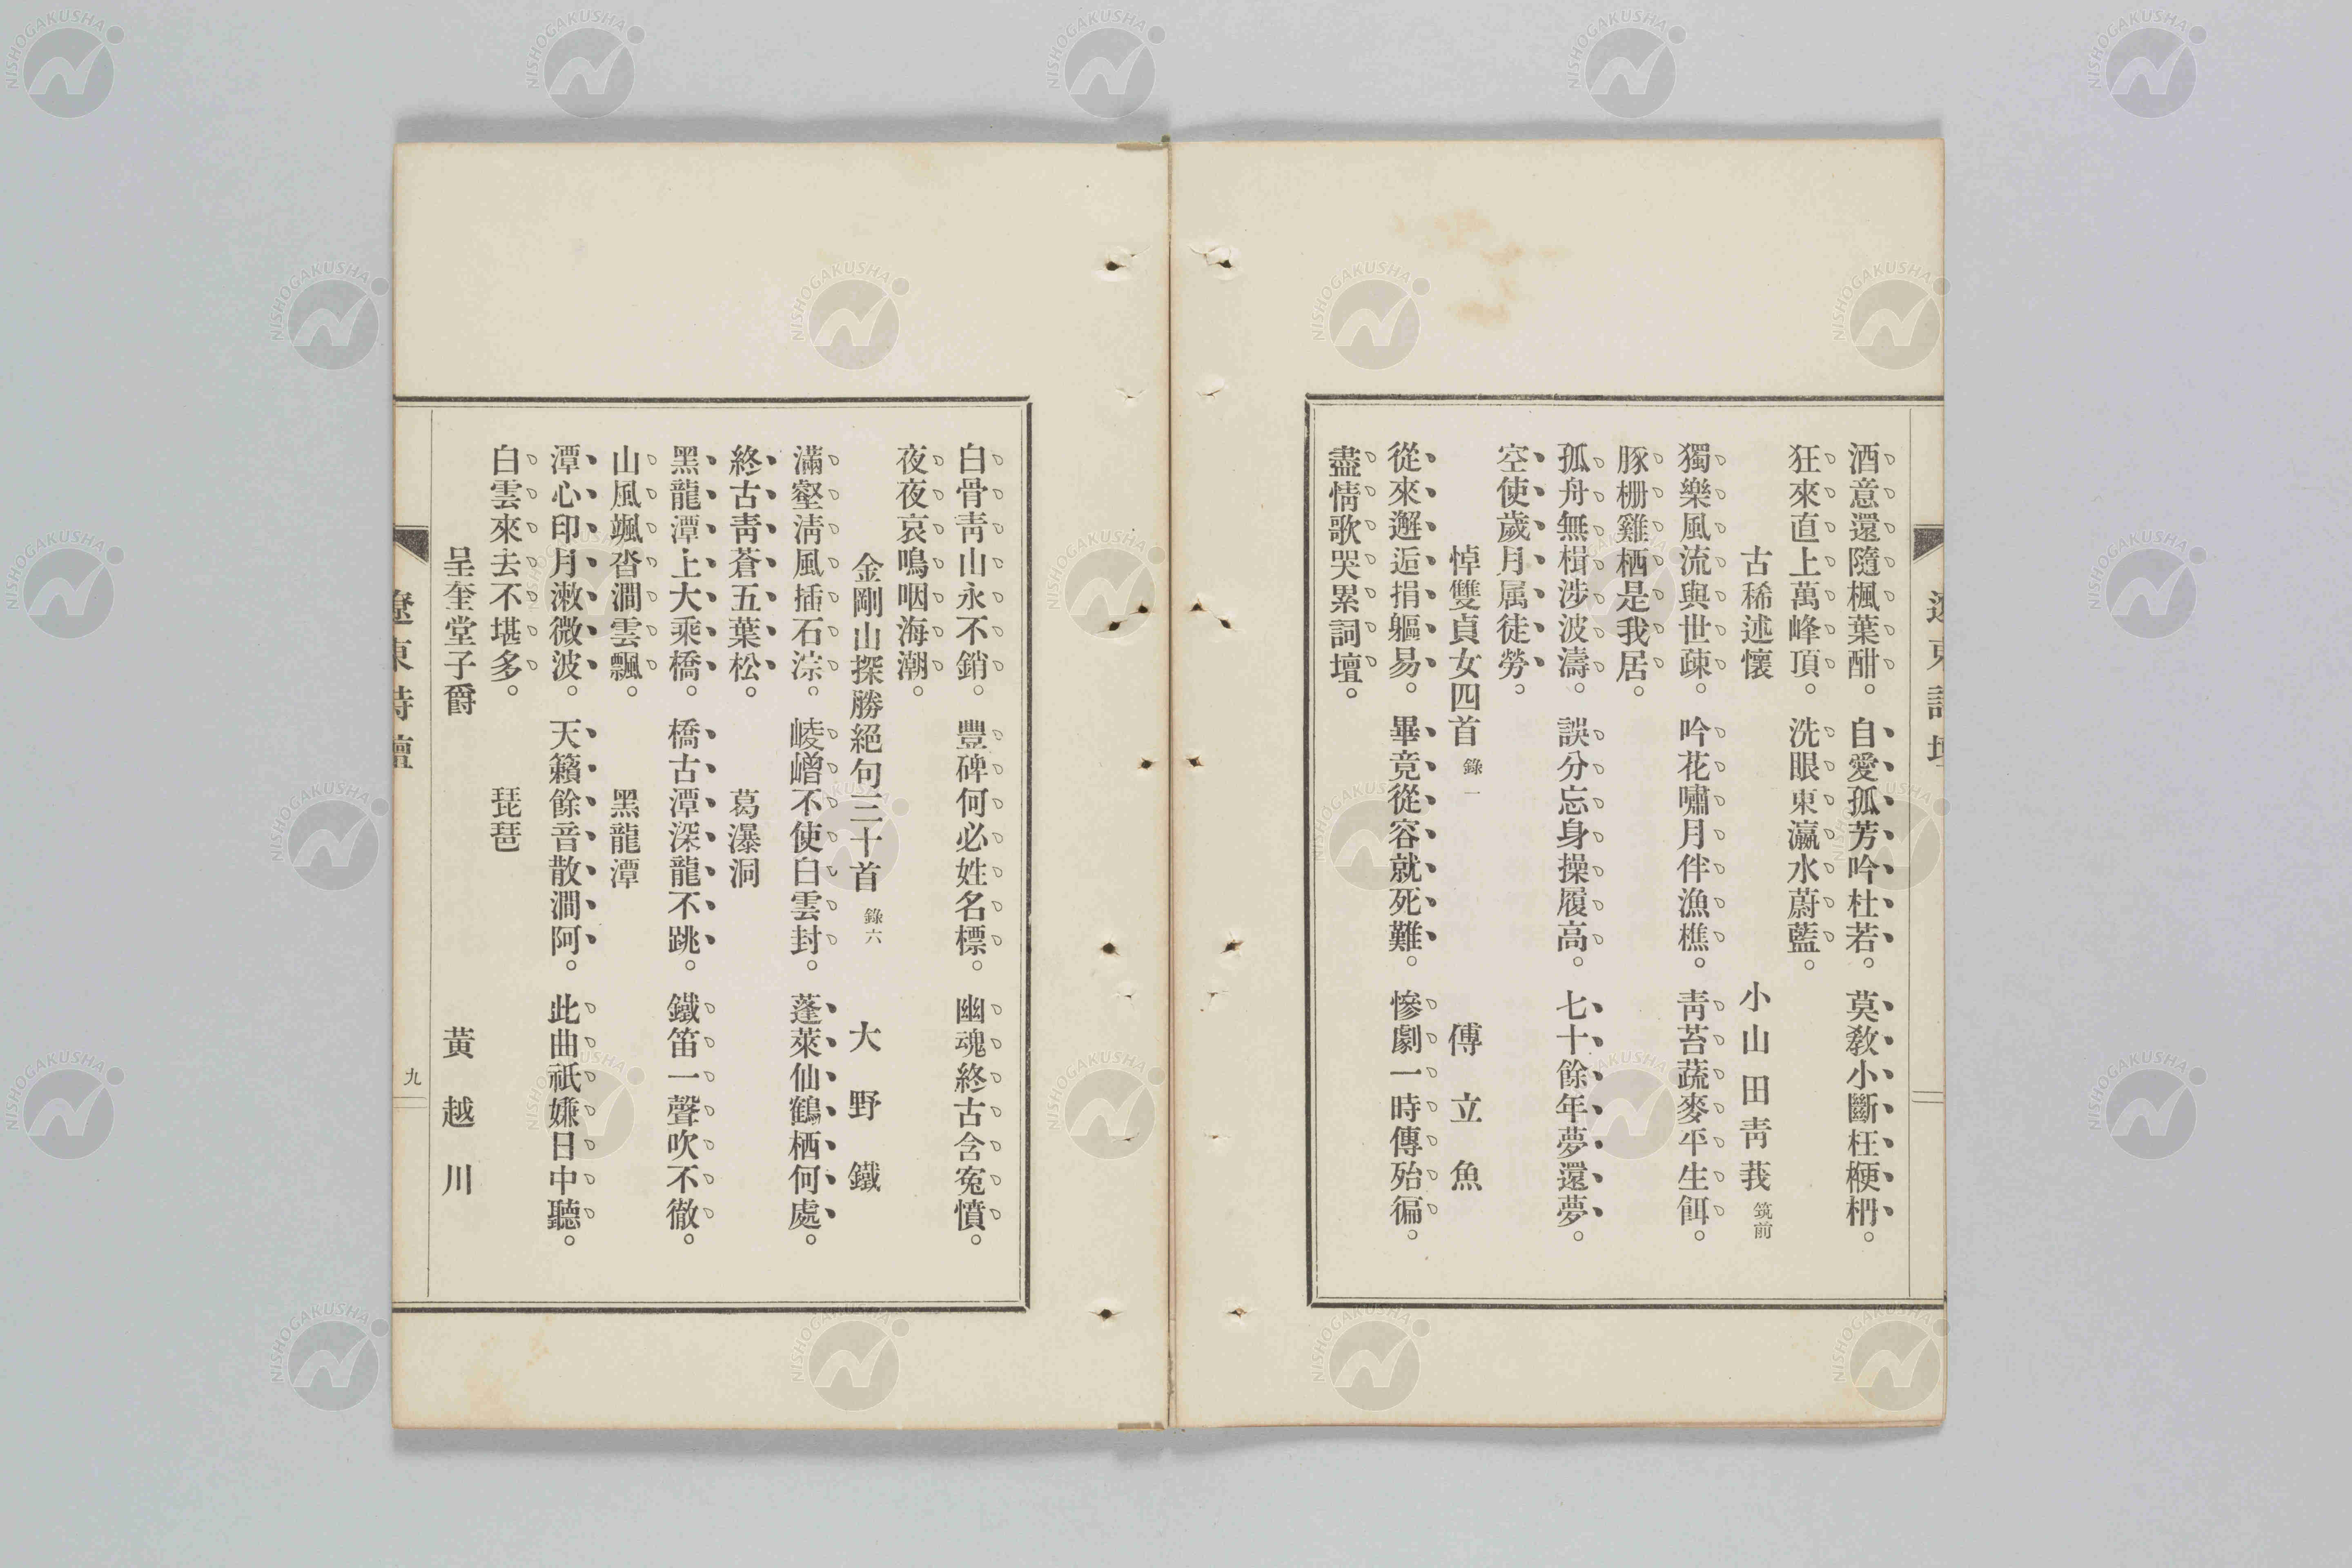 遼東詩壇
酒意還隨楓葉酣。自愛孤芳吟杜若。莫教小斷枉梗枬。
狂來直上萬峰頂。洗眼東瀛水蔚藍。
古稀述懷 小山田靑莪 筑前
獨樂風流與世疎。吟花嘯月伴漁樵。靑苔蔬麥平生餌。
豚柵雞栖是我居。
孤舟無楫涉波濤。誤分忘身操履高。七十餘年夢還夢。
空使歲月属徒勞。
悼雙貞女四首 錄一 傅立魚
從來邂逅捐軀易。畢竟從容就死難。慘劇一時傳殆徧。
盡情歌哭累詞壇。
白骨靑山永不銷。豐碑何必姓名標。幽魂終古含冤憤。
夜夜哀鳴咽海潮。
金剛山探勝絕句三十首 錄六 大野鐵
滿壑淸風插石淙。崚嶒不使白雲封。蓬萊仙鶴栖何處。
終古靑蒼五葉松。 葛瀑洞
黑龍潭上大乘橋。橋古潭深龍不跳。鐵笛一聲吹不徹。
山風颯沓澗雲飄。 黑龍潭
潭心印月漱微波。天籟餘音散澗阿。此曲祇嫌日中聽。
白雲來去不堪多。 琵琶
呈奎堂子爵 黃越川
遼東詩壇 九
NISHOGAKUSHA